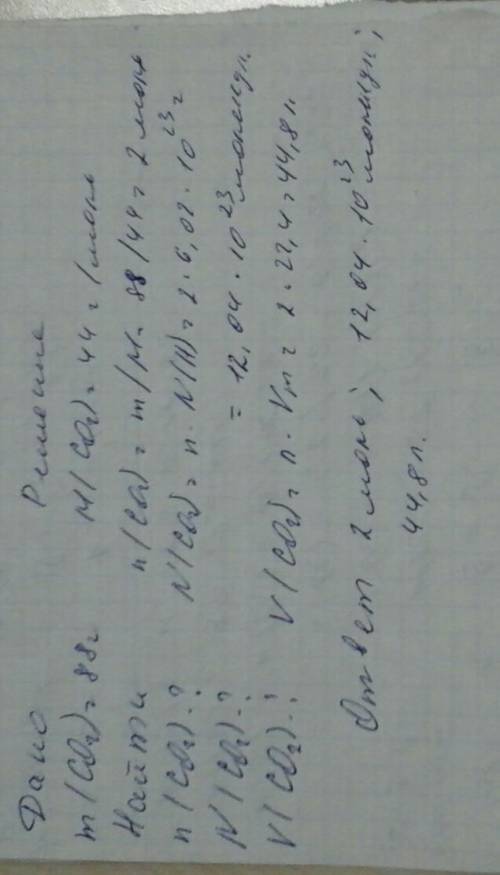 Дано
m(CO₂)=88г
Найти
n(CO₂)-?
N(CO₂)-?
V(CO₂)-?
Решение
M(CO₂)=44г/моль
n(CO₂)=m/M=88/44=2моль
N(CO₂)=n·N(A)=2·6,02·10²³=
=12,04·10²³молекул.
V(CO₂)=n·Vm=2·22,4=44,8л.
Ответ 2моль; 12,04·10²³молекул;
44,8л.